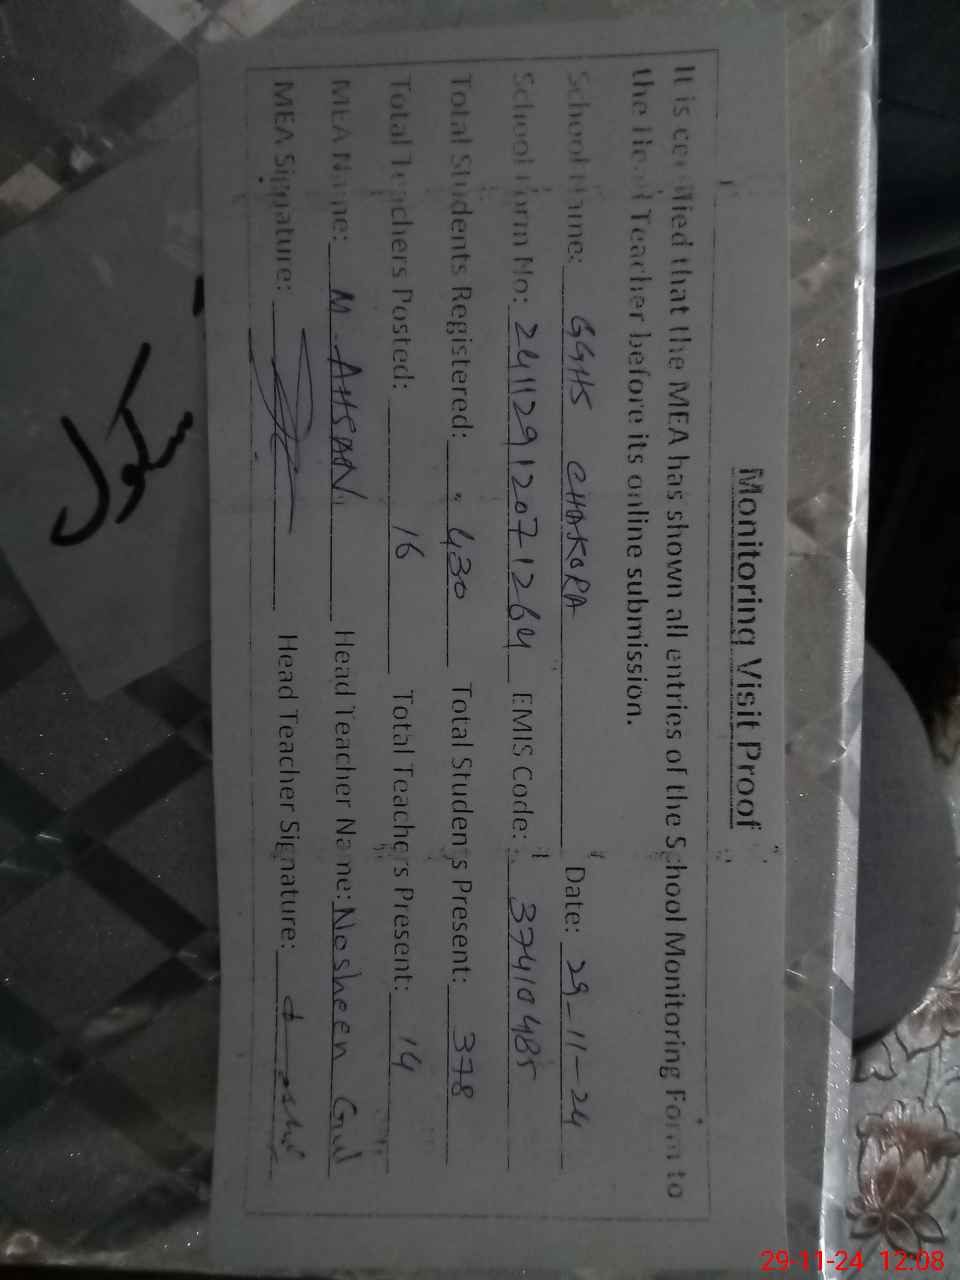 Monitoring Visit Proof
It is certified that the MEA has shown all entries of the School Monitoring Form to
the Head Teacher before its online submission.
School Name: GGHS CHAKORA Date: 29-11-24
School Form No: 24112912071264 EMIS Code: 37410485
Total Students Registered: 430 Total Students Present: 378
Total Teachers Posted: 16 Total Teachers Present: 14
MEA Name: M. AHSAN Head Teacher Name: Nosheen Gul
MEA Signature: Head Teacher Signature:
29-11-24 12:08